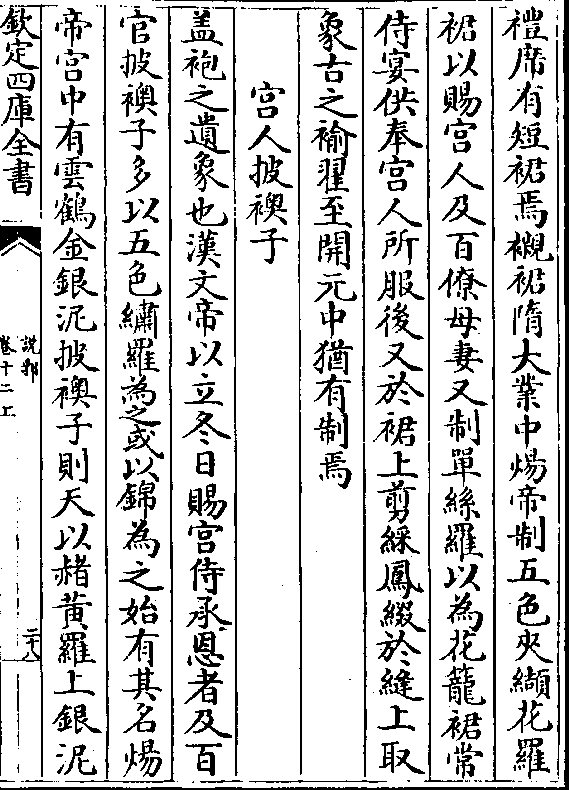 禮席有短裙焉襯裙隋大業中煬帝制五色夾纈花羅
裙以賜宫人及百僚母妻又制單絲羅以為花籠裙常
侍宴供奉宫人所服後又於裙上剪綵鳳綴於縫上取
象古之褕翟至開元中猶有制焉
宫人披襖子
盖袍之遺象也漢文帝以立冬日賜宫侍承恩者及百
官披襖子多以五色繡羅為之或以錦為之始有其名煬
帝宫中有雲鶴金銀泥披襖子則天以赭黄羅上銀泥
欽定四庫全書
說郛
卷十二上
二十八